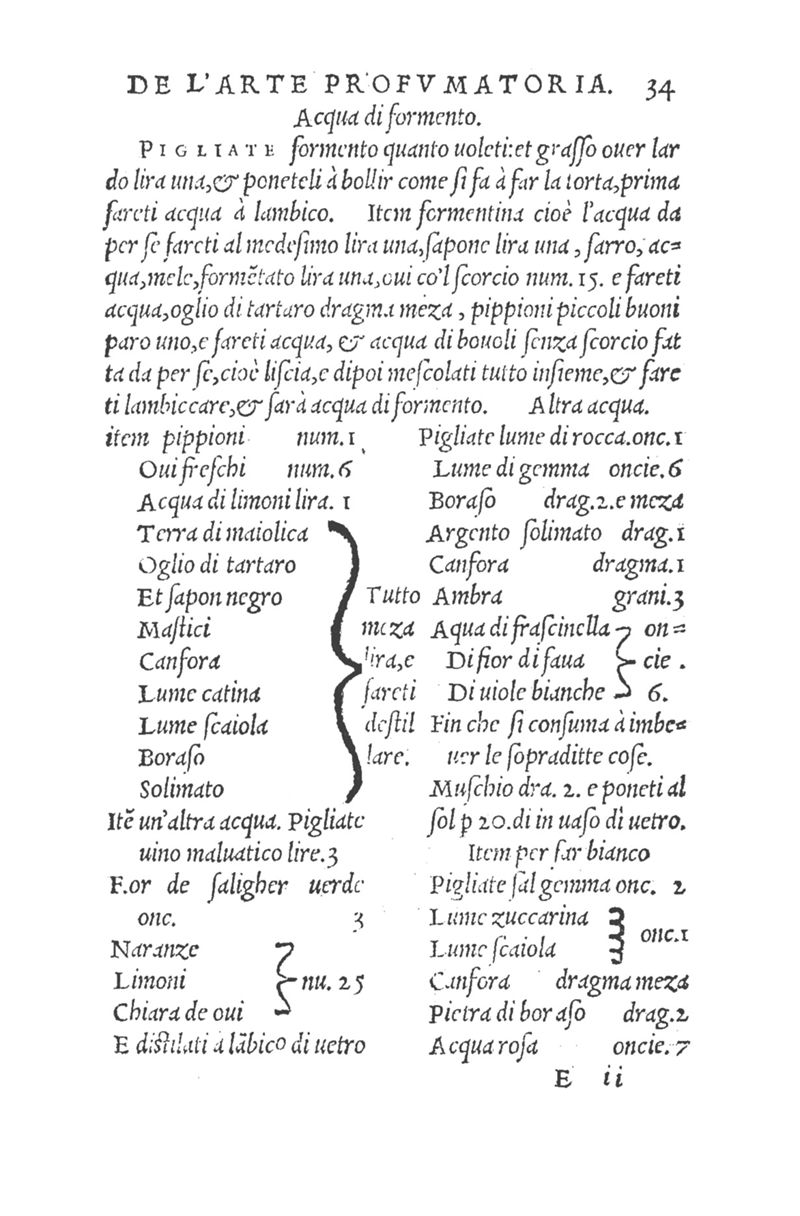 DE L'ARTE PROFVMATORIA. 34
Acqua di formento.
PIGLIATE formento quanto uoleti: et graſſo ouer lar
do lira una,& poneteli à bollir come ſi fa à far la torta,prima
fareti acqua à lambico. Item formentina cioè l'acqua da
per ſe fareti al medeſimo lira una,ſapone lira una, farro, ac=
qua,mele,formētato lira una,oui co'l ſcorcio num. 15. e fareti
acqua,oglio di tartaro dragma meza, pippioni piccoli buoni
paro uno,e fareti acqua, & acqua di bouoli ſenza ſcorcio fat
ta da per ſe,cioè liſcia,e dipoi meſcolati tutto inſieme,& fare
ti lambiccare,& ſarà acqua di formento. Altra acqua.
item pippioni num. 1
Oui freſchi num. 6
Acqua di limoni lira. 1
Terra di maiolica
Oglio di tartaro
Et ſapon negro
Maſtici
Canfora
Lume catina
Lume ſcaiola
Boraſo
Solimato
Tutto
meza
lira,e
fareti
deſtil
lare.
Itē un'altra acqua. Pigliate
uino maluatico lire. 3
Fior de ſaligher uerde
onc. 3
Naranze
Limoni
Chiara de oui
nu. 25
E diſtilati a lābico di uetro
Pigliate lume di rocca.onc. 1
Lume di gemma oncie. 6
Boraſo drag. 2. e meza
Argento ſolimato drag. 1
Canfora dragma. 1
Ambra grani. 3
Aqua di fraſcinella
Di fior di faua
Di uiole bianche
on=
cie.
6.
Fin che ſi conſuma à imbe=
uer le ſopraditte coſe.
Muſchio dra. 2. e poneti al
ſol p 20. di in uaſo di uetro.
Item per far bianco
Pigliate ſal gemma onc. 2
Lume zuccarina
Lume ſcaiola
onc. 1
Canfora dragma meza
Pietra di boraſo drag. 2
Acqua roſa oncie. 7
E ii